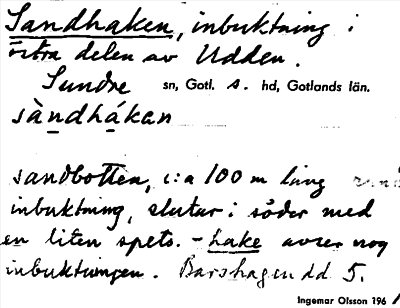 Sandhaken, inbuktning i
östra delen av Udden.
Sundre sn, Gotl. A. hd, Gotlands län.
sàndhákan
sandbotten, c:a 100 m lång
inbuktning, slutar i söder med
en liten spets. - hake avser nog
inbuktningen. Barshagen dd 5.
Ingemar Olsson 196